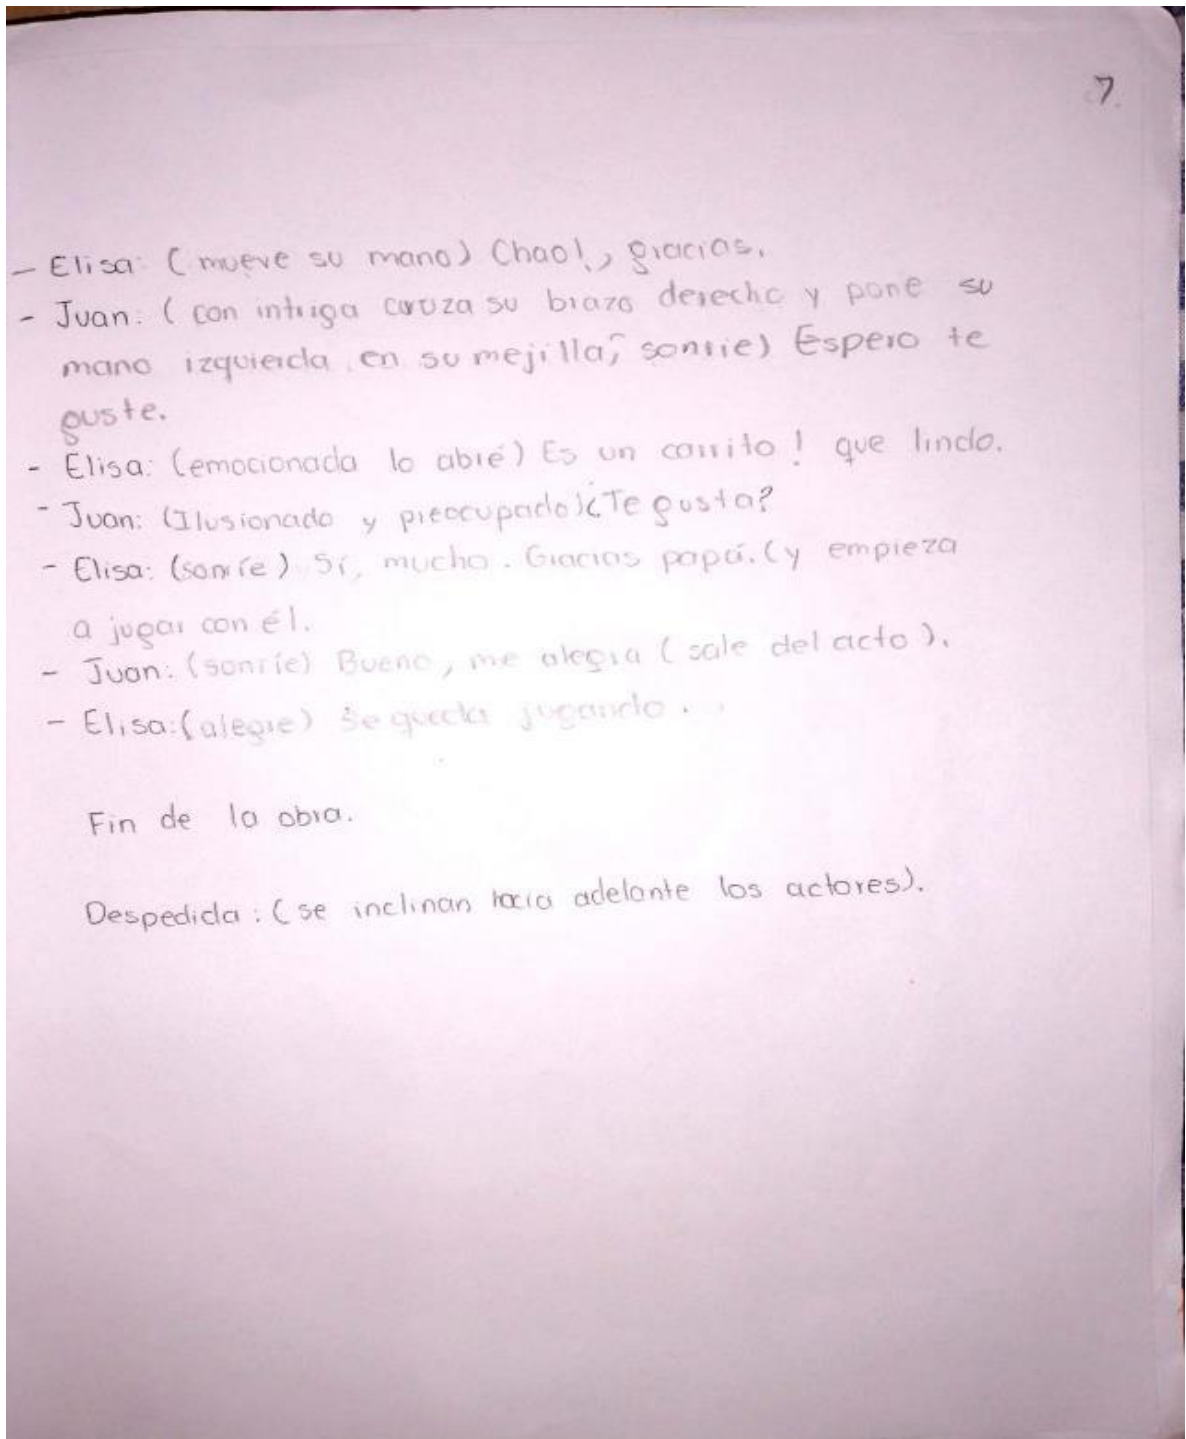 7.
- Elisa: (mueve su mano) Chao!, gracias.
- Juan: (con intriga cruza su brazo derecho y pone su
mano izquierda en su mejilla, sonrie) Espero te
guste.
- Elisa: (emocionada lo abre) Es un carrito! que lindo.
- Juan: (Ilusionado y preocupado) ¿Te gusta?
- Elisa: (sonríe) Sí, mucho. Gracias papá. (y empieza
a jugar con él.
- Juan: (sonríe) Bueno, me alegra (sale del acto).
- Elisa: (alegre) Se queda jugando..
Fin de la obra.
Despedida: (se inclinan hacia adelante los actores).